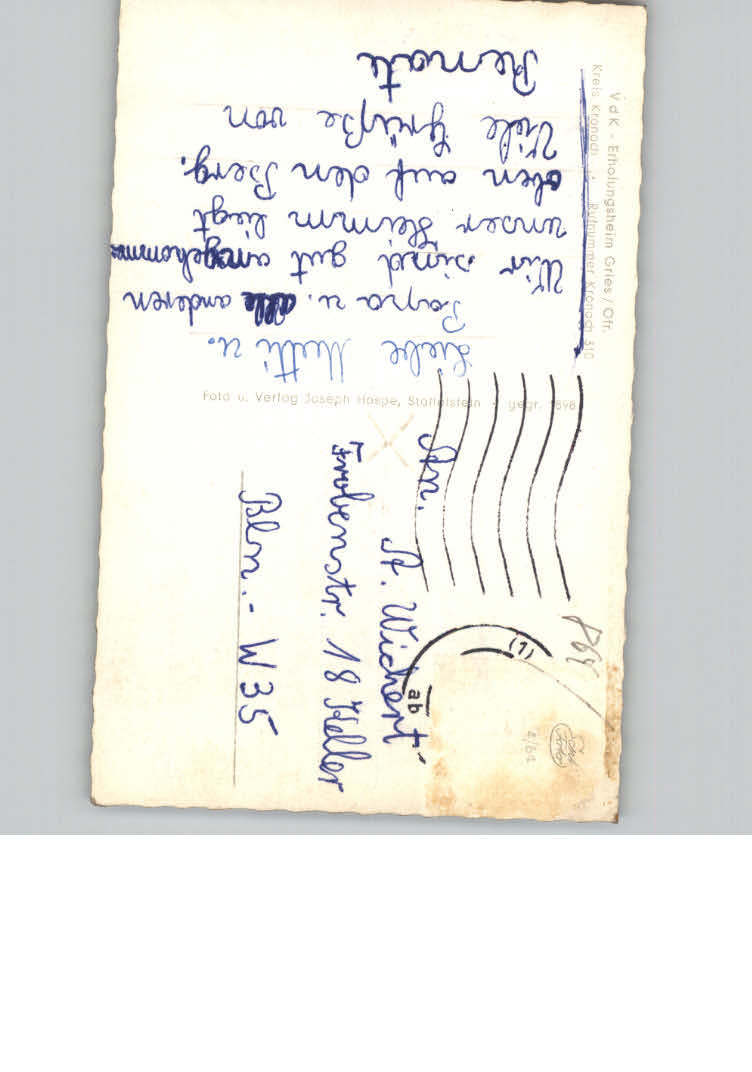 VdK - Erholungsheim Gries / Ofr.
Kreis Kronach : Rufnummer Kronach 310
Liebe Mutti u.
Papa u. alle anderen
Wir sind gut angekommen
unser Heimm liegt
oben auf den Berg.
Viele Grüße von
Renate
Foto u. Verlag Joseph Haspe, Staffelstein - gegr. 1898
An.
A. Wichert
Frobenstr. 18 Keller
Bln.- W 35
(1)
ab
4/61